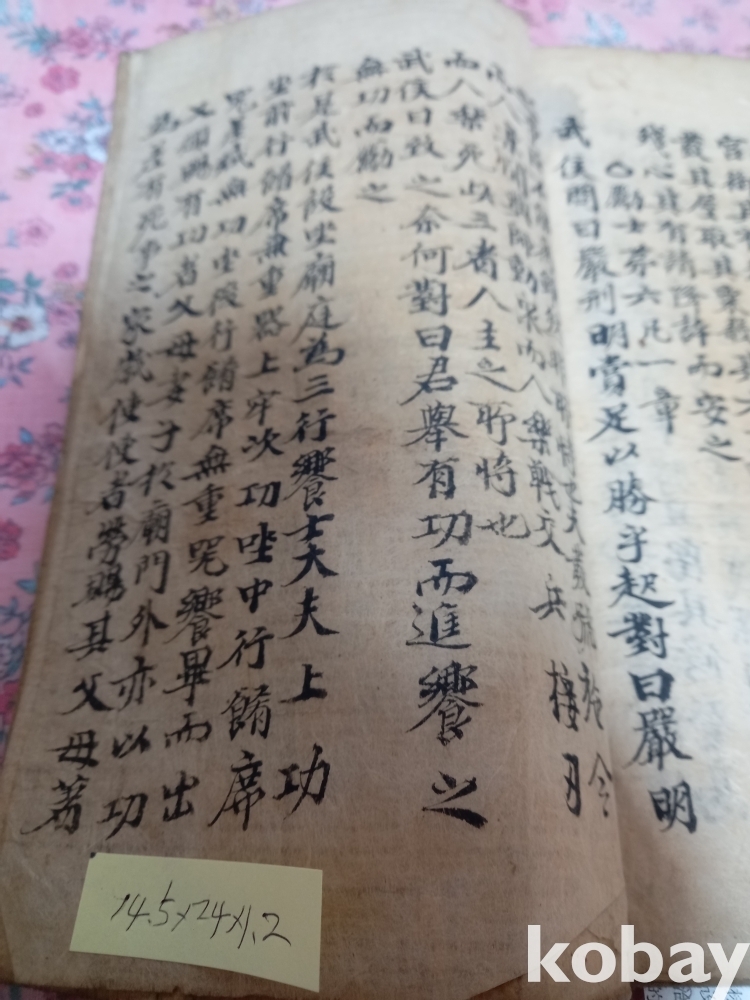 殘心其有請降許而安之
○勵士第六凡一章
武侯問曰嚴刑明賞足以勝乎起對曰嚴明
夫發號施令
人樂聞興師動衆而人樂戰交兵接刃
而人樂死此三者人主之所恃也
武侯曰致之奈何對曰君舉有功而進饗之
無功而勵之
於是武侯設坐廟庭為三行饗士大夫上功
坐前行餚席無重器上牢次功坐中行餚席
器差減無功坐後行餚席無重器饗畢而出
又頒賜有功者父母妻子於廟門外亦以功
為差有死事之家歲使使者勞賜其父母著
14.5x24x1.2
kobay